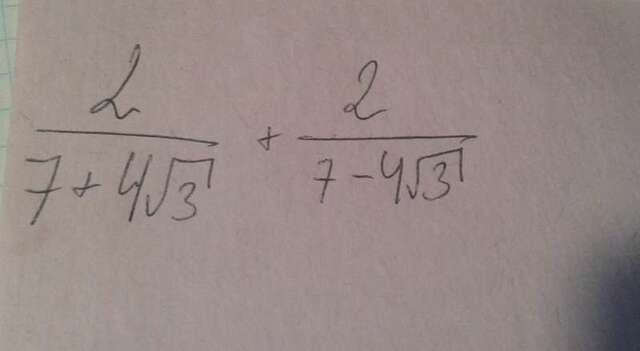 2/(7+4√3) + 2/(7-4√3)